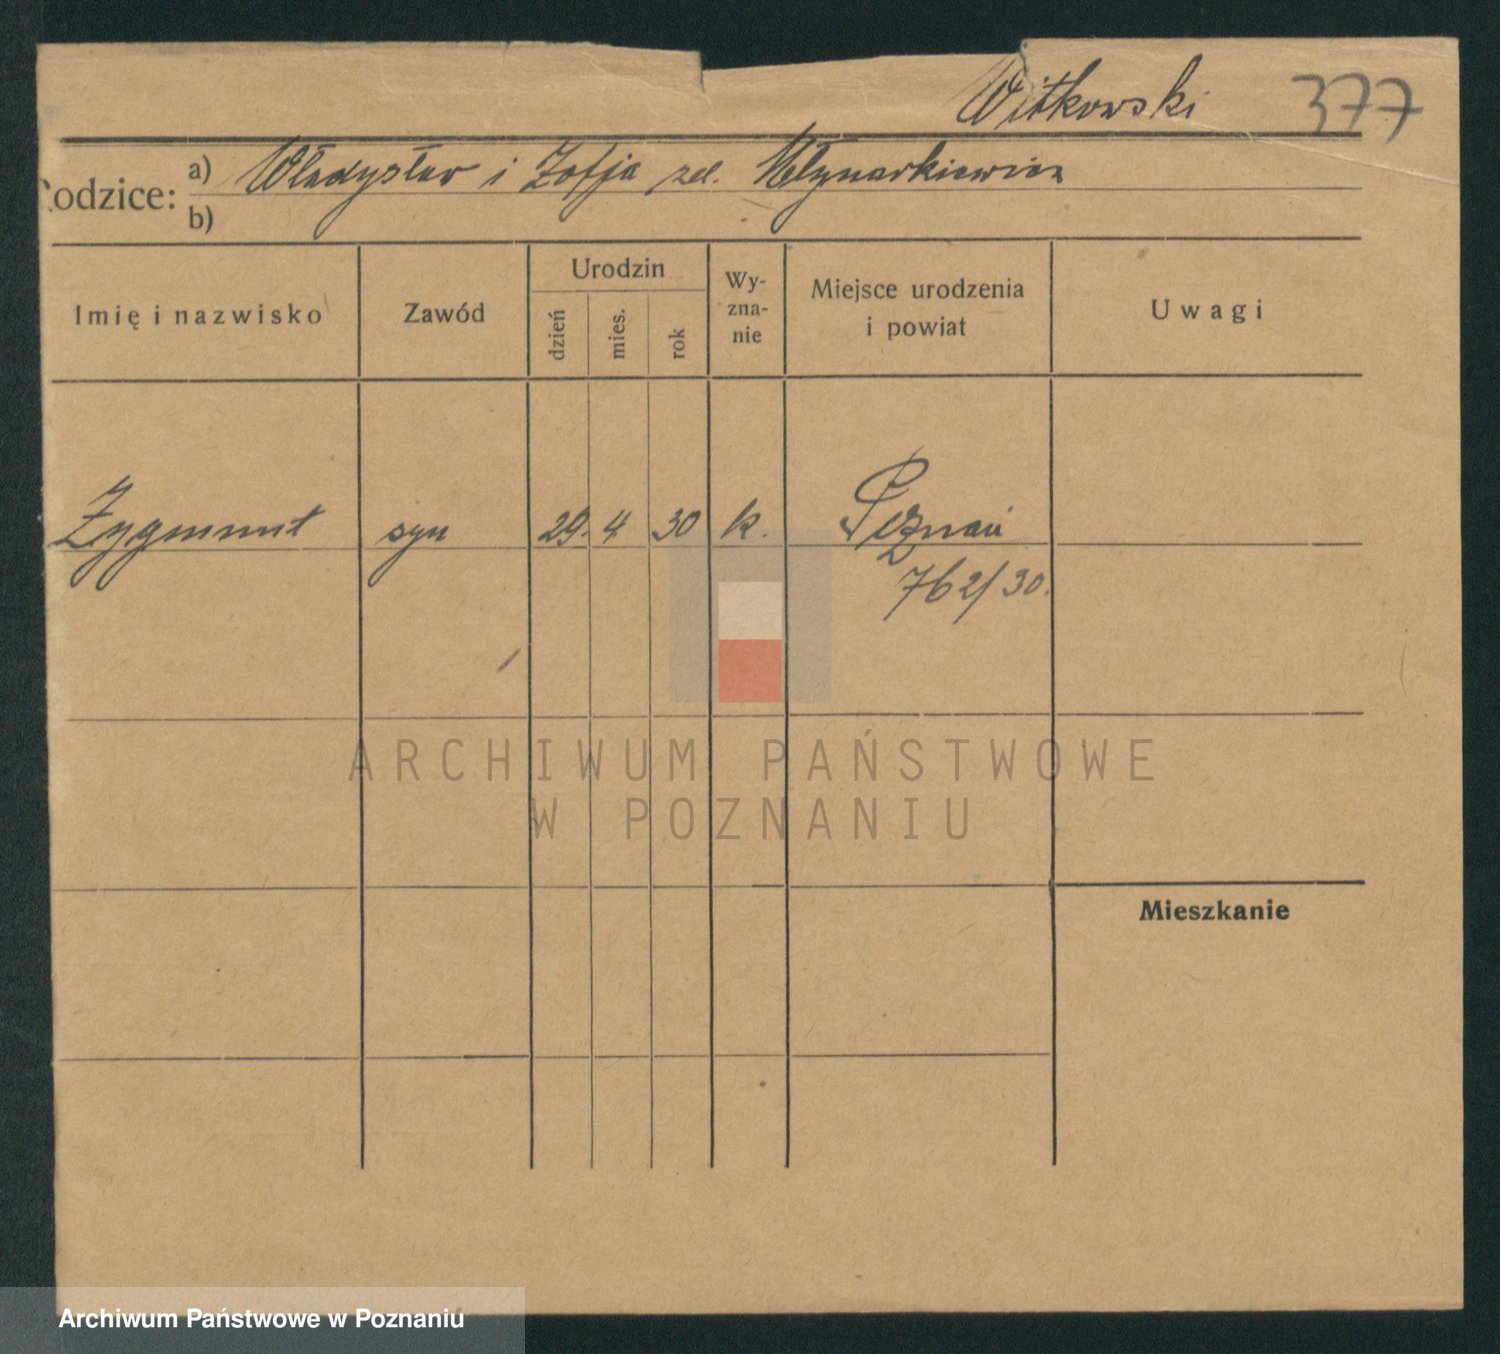 Witkowski 377
Rodzice: a) Władysław i Zofja zd. Młynarkiewicz
b)
Imię i nazwisko
Zawód
Urodzin
dzień
mies.
rok
Wy-
zna-
nie
Miejsce urodzenia
i powiat
Uwagi
Zygmunt syn 29. 4. 30 k. Poznań
762/30.
ARCHIWUM PAŃSTWOWE
W POZNANIU
Mieszkanie
Archiwum Państwowe w Poznaniu